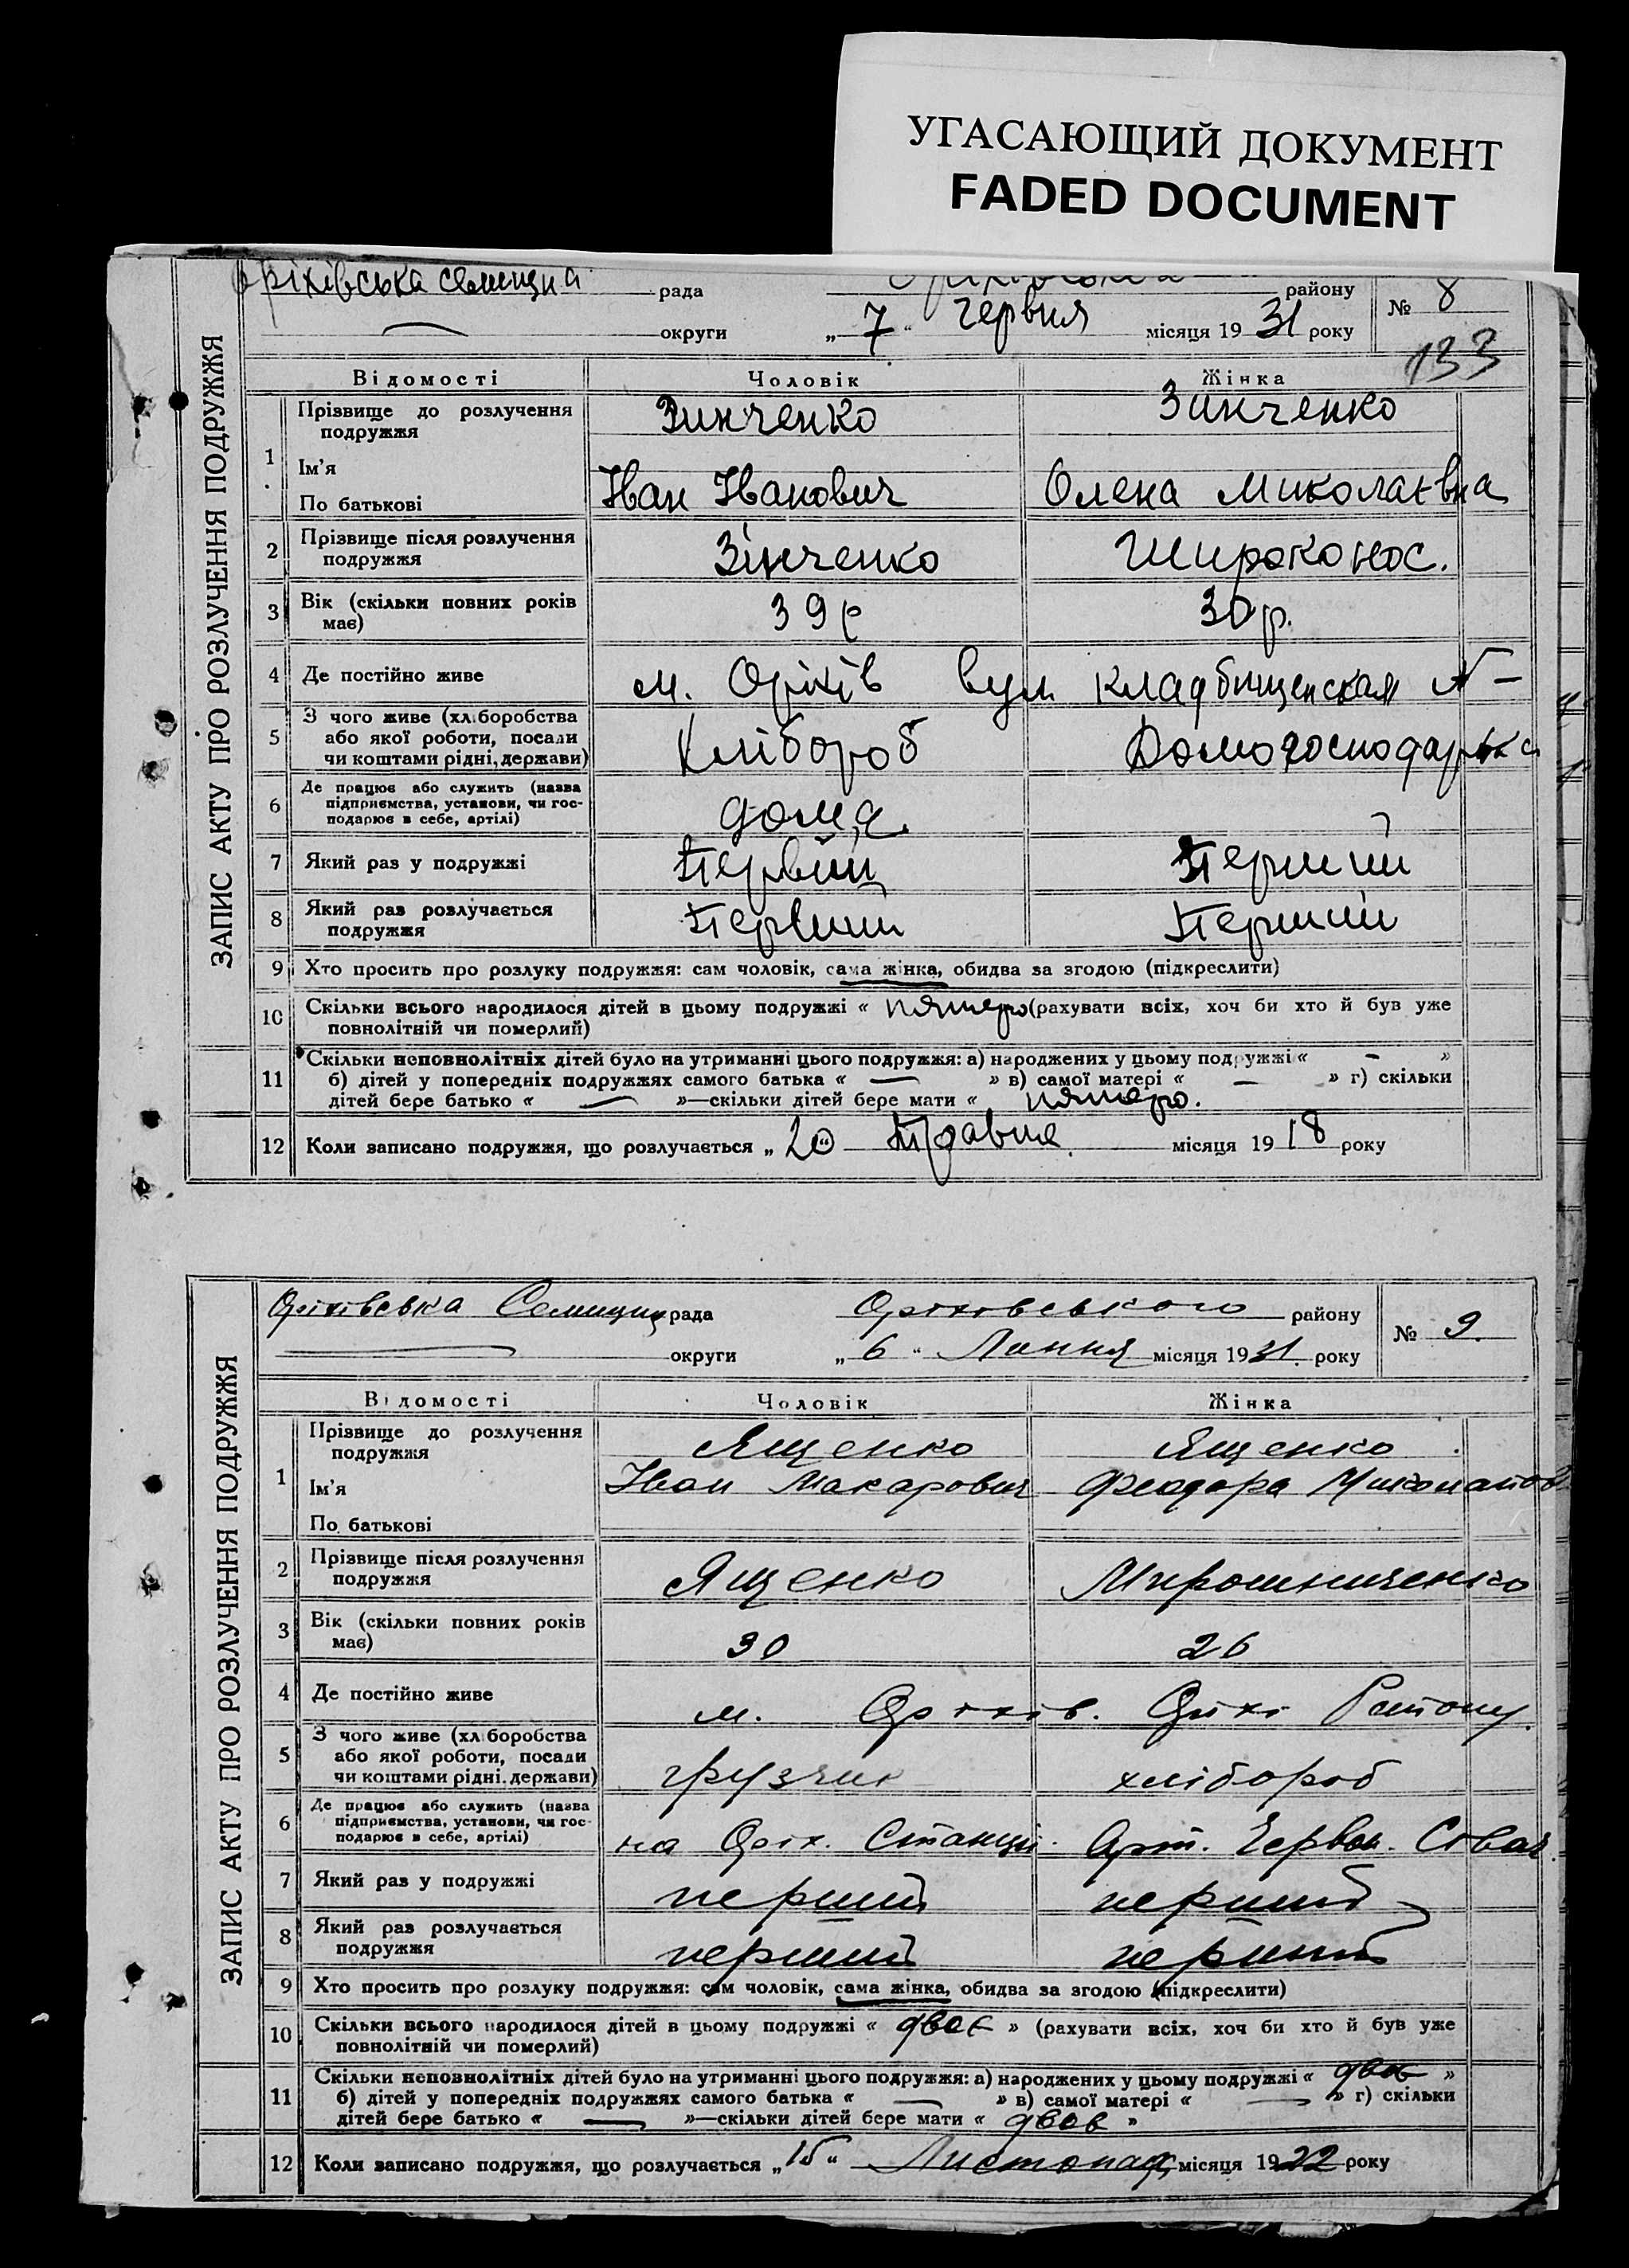 УГАСАЮЩИЙ ДОКУМЕНТ
FADED DOCUMENT
ЗАПИС АКТУ ПРО РОЗЛУЧЕННЯ ПОДРУЖЖЯ
Оріхівська селищна рада району № 8
округи „ 7 “ Червня місяця 19 31 року
133
Відомості Чоловік Жінка
1 Прізвище до розлучення подружжя Зинченко Зинченко
Ім'я
По батькові Іван Іванович Олена Миколаєвна
2 Прізвище після розлучення подружжя Зінченко Широконос.
3 Вік (скільки повних років має) 39 р 30 р.
4 Де постійно живе м. Оріхів вул. Кладбищенская № –
5 З чого живе (хліборобства або якої роботи, посади чи коштами рідні, держави) Хлібороб Домогосподарька
6 Де працює або служить (назва підприємства, установи, чи господарює в себе, артілі) дома.
7 Який раз у подружжі Первий Перший
8 Який раз розлучається подружжя Первий Перший
9 Хто просить про розлуку подружжя: сам чоловік, сама жінка, обидва за згодою (підкреслити)
10 Скільки всього народилося дітей в цьому подружжі « пятеро (рахувати всіх, хоч би хто й був уже
повнолітній чи померлий)
11 Скільки неповнолітніх дітей було на утриманні цього подружжя: а) народжених у цьому подружжі « – »
б) дітей у попередніх подружжях самого батька « — » в) самої матері « — » г) скільки
дітей бере батько « — »—скільки дітей бере мати « пятеро.
12 Коли записано подружжя, що розлучається „ 20 “ Травня місяця 19 18 року
ЗАПИС АКТУ ПРО РОЗЛУЧЕННЯ ПОДРУЖЖЯ
Оріхівська Селищна рада Оріхівського району № 9.
округи „ 6 “ Липня місяця 19 31. року
Відомості Чоловік Жінка
1 Прізвище до розлучення подружжя Ященко Ященко
Ім'я Іван Макарович Феодора
По батькові
2 Прізвище після розлучення подружжя Ященко Мирошниченко
3 Вік (скільки повних років має) 30 26
4 Де постійно живе м. Оріхів. Оріхі Району.
5 З чого живе (хліборобства або якої роботи, посади чи коштами рідні, держави) грузчик хлібороб
6 Де працює або служить (назва підприємства, установи, чи господарює в себе, артілі) на Оріх. Станції. Арт. Червон. Сівач.
7 Який раз у подружжі перший перший
8 Який раз розлучається подружжя перший перший
9 Хто просить про розлуку подружжя: сам чоловік, сама жінка, обидва за згодою (підкреслити)
10 Скільки всього народилося дітей в цьому подружжі « двоє » (рахувати всіх, хоч би хто й був уже
повнолітній чи померлий)
11 Скільки неповнолітніх дітей було на утриманні цього подружжя: а) народжених у цьому подружжі « двоє »
б) дітей у попередніх подружжях самого батька « — » в) самої матері « — » г) скільки
дітей бере батько « — »—скільки дітей бере мати « двоє »
12 Коли записано подружжя, що розлучається „ 15 “ Листопада місяця 19 22 року